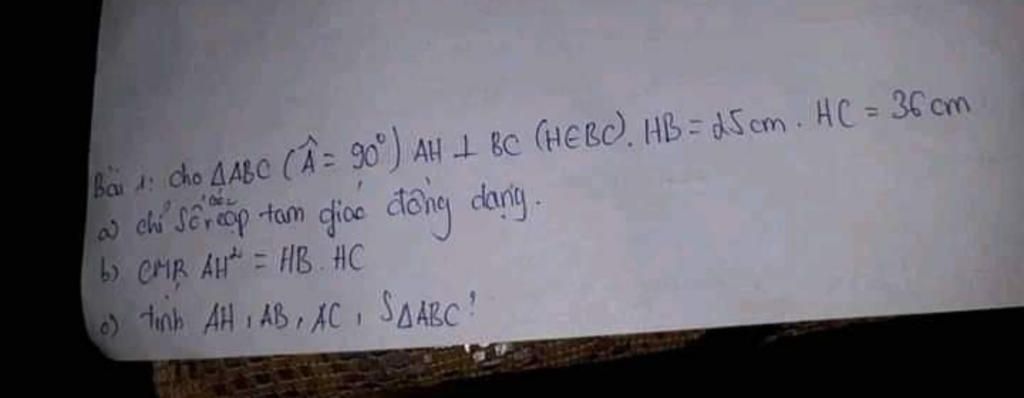 Bài 1: cho ΔABC (Â = 90°) AH ⊥ BC (H∈BC). HB = 25cm. HC = 36cm
a) chỉ số các cặp tam giác đồng dạng.
b) CMR AH² = HB.HC
c) tính AH, AB, AC, SΔABC?